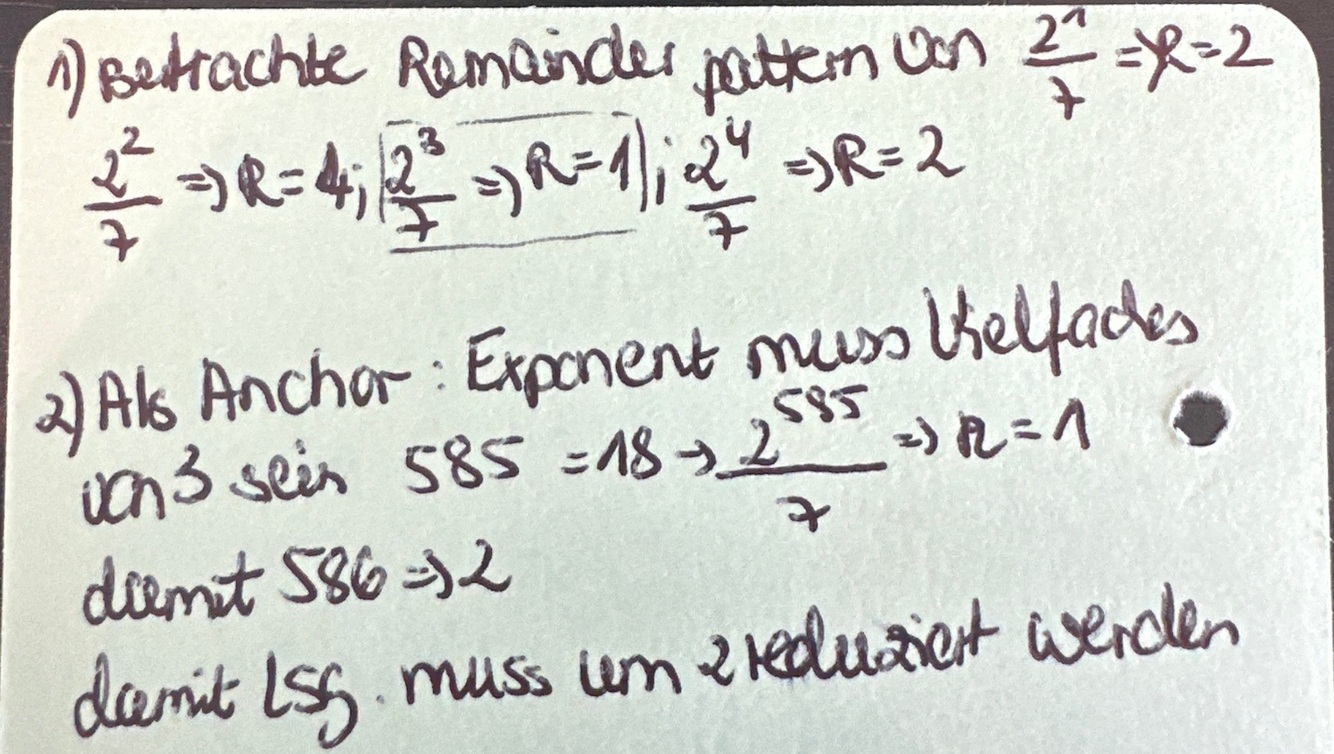 1) Betrachte Remainder pattern von 2^1/7 => R = 2
2^2/7 => R = 4; 2^3/7 => R = 1; 2^4/7 => R = 2
2) Als Anchor: Exponent muss Vielfaches
von 3 sein 585 = 18 → 2^585/7 => R = 1
damit 586 => 2
damit LSG. muss um 2 reduziert werden